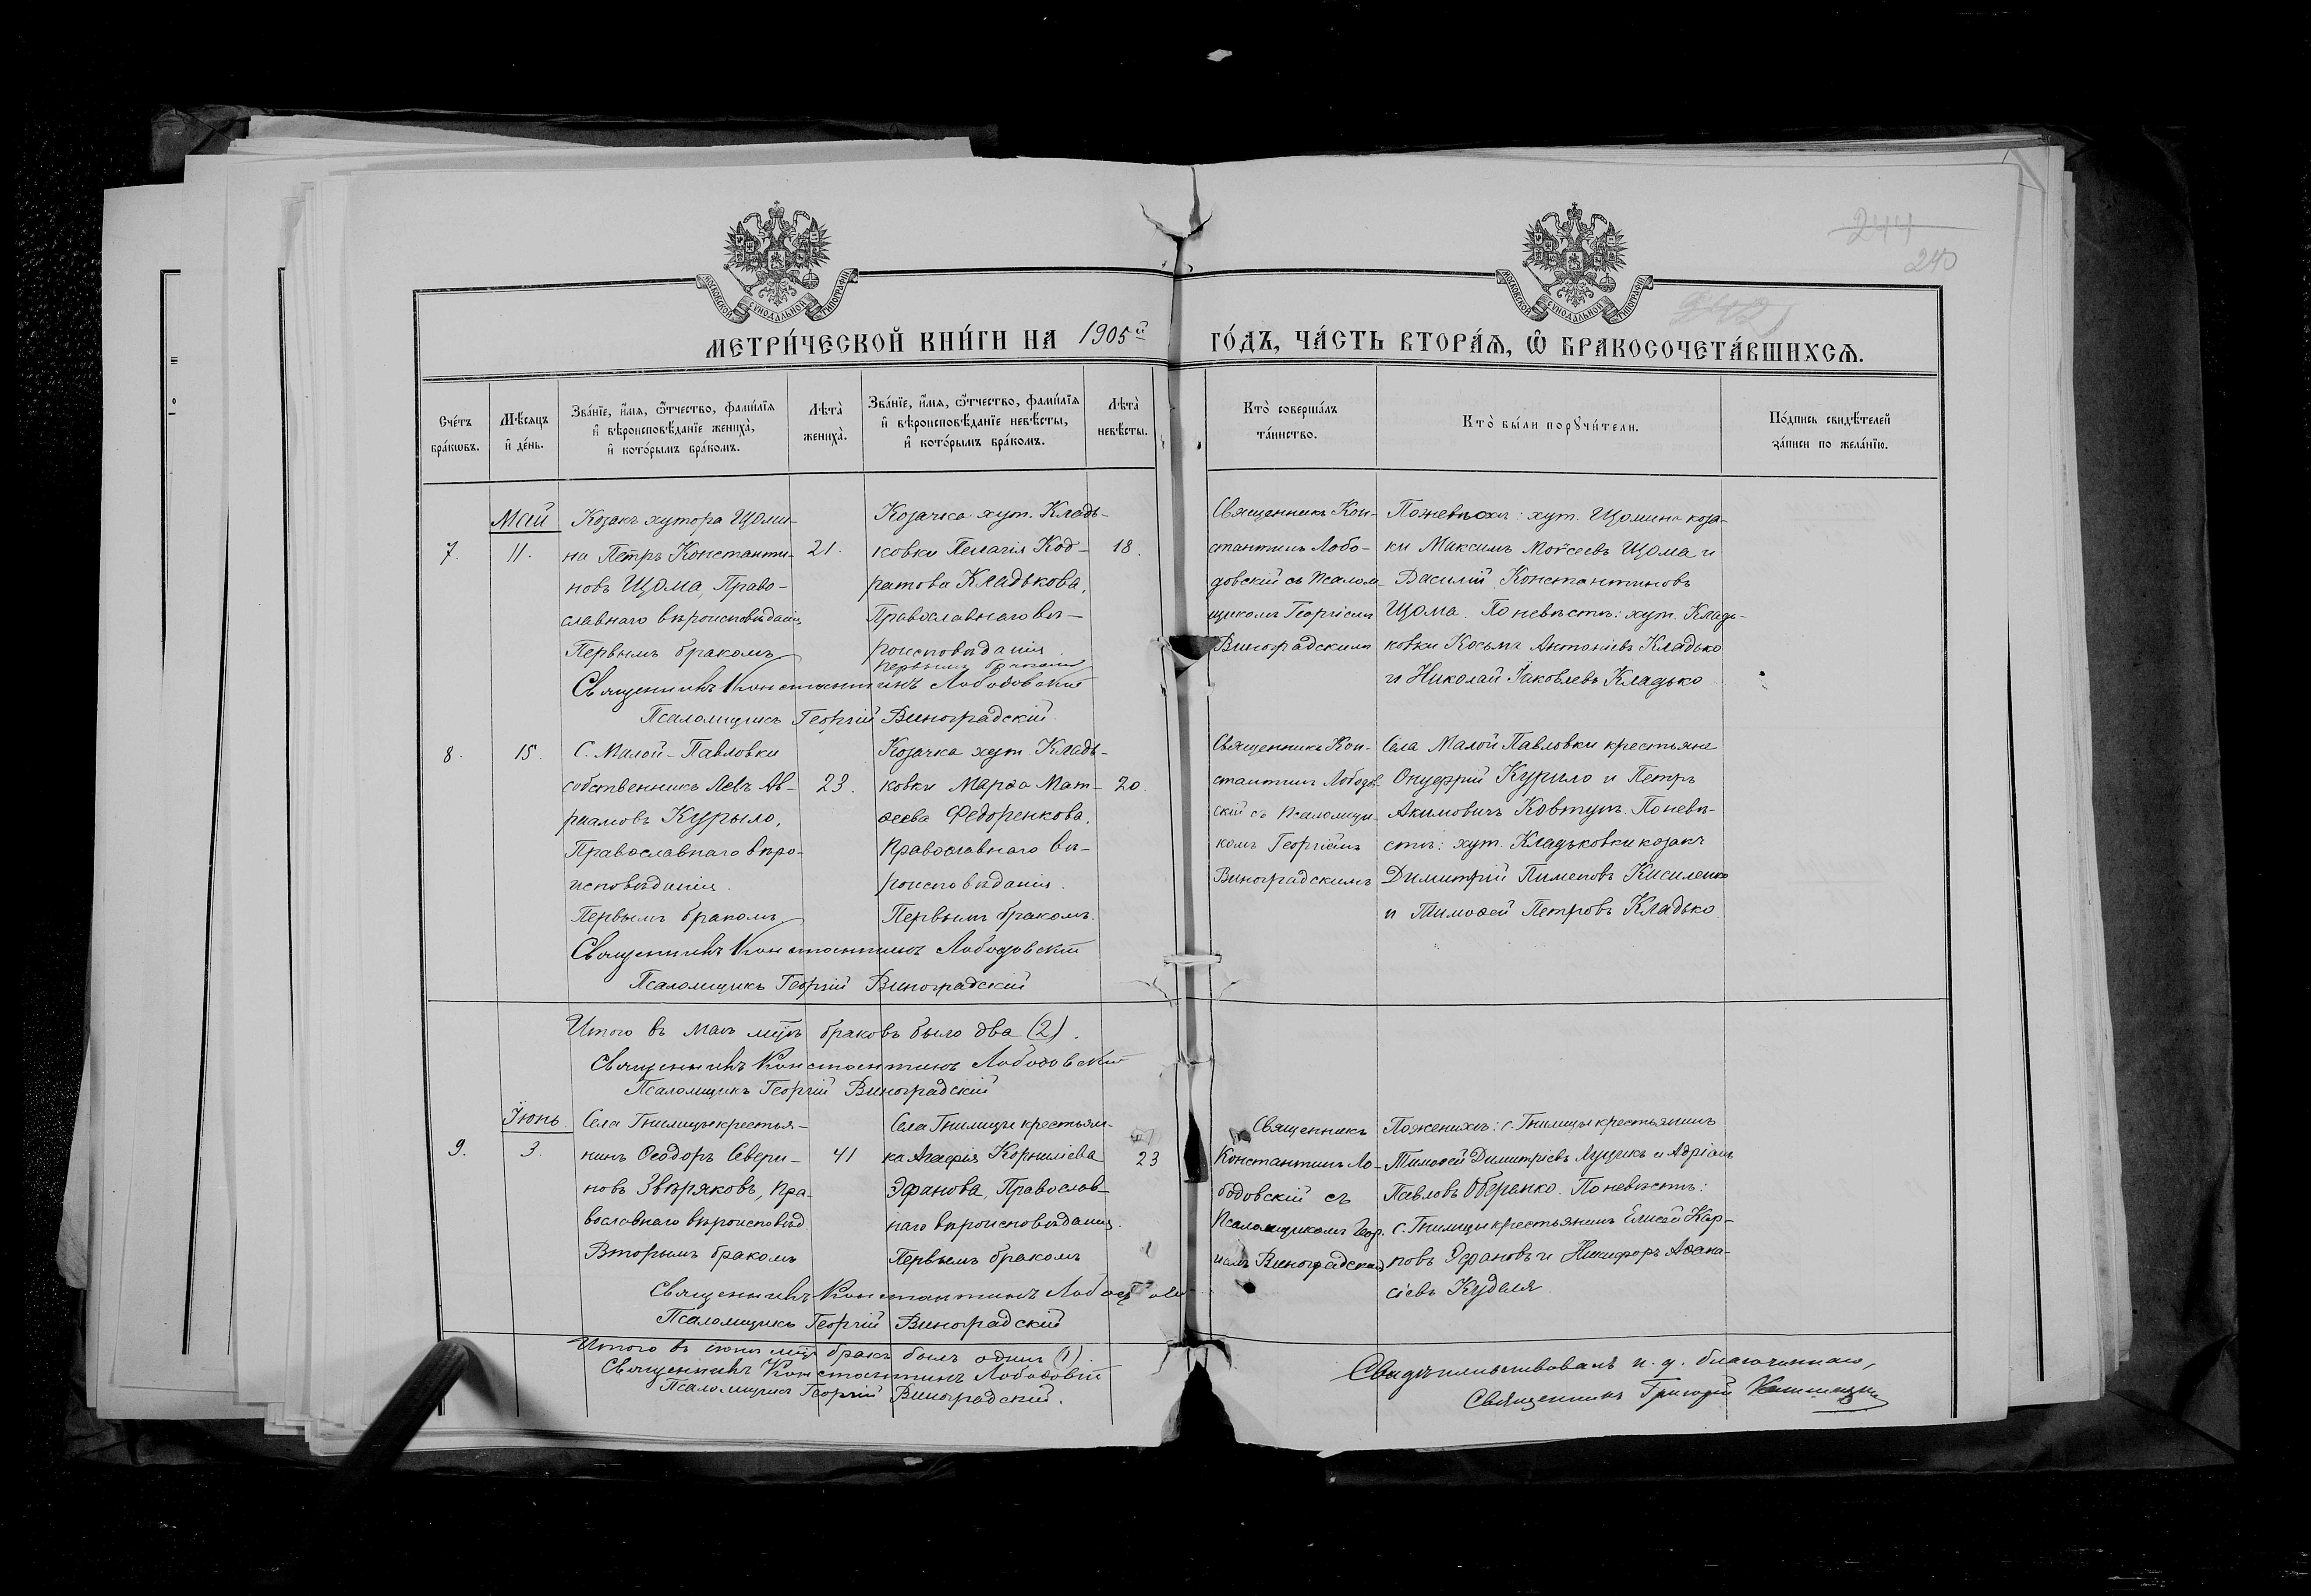 244
240
МОСКОВСКОЙ СѴНОДАЛЬНОЙ ТИПОГРАФІИ
МОСКОВСКОЙ СѴНОДАЛЬНОЙ ТИПОГРАФІИ
МЕТРИ́ЧЕСКОЙ КНИ́ГИ НА 1905й ГО́ДЪ, ЧА́СТЬ ВТОРА́Ѧ, Ѽ БРАКОСОЧЕТА́ВШИХСѦ.
Сче́тъ
бра́кѡвъ.
Мѣ́сѧцъ
и҆ де́нь.
Зва́нїе, и҆́мѧ, ѻ҆́тчество, фами́лїѧ
и҆ вѣроисповѣ́данїе жениха̀,
и҆ кото́рымъ бра́комъ.
Лѣта̀
жениха̀.
Зва́нїе, и҆́мѧ, ѻ҆́тчество, фами́лїѧ
и҆ вѣроисповѣ́данїе невѣ́сты,
и҆ кото́рымъ бра́комъ.
Лѣта̀
невѣ́сты.
Кто̀ соверша́лъ
та́инство.
Кто̀ бы́ли порꙋчи́тели.
По́дпись свидѣ́телей
за́писи по жела́нїю.
Май
7.
11.
Козакъ хутора Щоми-
на Петръ Константи-
новъ Щома, Право-
славнаго вѣроисповѣданія
Первымъ бракомъ
21.
Козачка хут. Кладь-
ковки Пелагія Код-
ратова Кладькова,
Православнаго вѣ-
роисповѣданія
первымъ бракомъ
18.
Священникъ Кон-
стантинъ Лобо-
довскій съ Псалом-
щикомъ Георгіемъ
Виноградскимъ
Поженихѣ: хут. Щомина коза-
ки Максимъ Моѵсеевъ Щома и
Василій Константиновъ
Щома. По невѣстѣ: хут. Кладь-
ковки Косьма Антоніевъ Кладько
и Николай Іаковлевъ Кладько
Священникъ Константинъ Лободовскій
Псаломщикъ Георгій Виноградскій
8.
15.
С. Малой-Павловки
собственникъ Левъ Ав-
раамовъ Курыло,
Православнаго вѣро-
исповѣданія.
Первымъ бракомъ
23.
Козачка хут. Кладь-
ковки Марѳа Мат-
ѳеева Федоренкова,
Православнаго вѣ-
роисповѣданія.
Первымъ бракомъ.
20.
Священникъ Кон-
стантинъ Лободов-
скій съ Псаломщи-
комъ Георгіемъ
Виноградскимъ
Села Малой Павловки крестьяне
Онуфрій Курило и Петръ
Акимовичъ Ковтунъ. Поневѣ-
стѣ: хут. Кладьковки козаки
Димитрій Пименовъ Кисиленко
и Тимоѳей Петровъ Кладько
Священникъ Константинъ Лободовскій
Псаломщикъ Георгій Виноградскій
Итого въ маѣ мцѣ браковъ было два (2).
Священникъ Константинъ Лободовскій
Псаломщикъ Георгій Виноградскій
Іюнь
9.
3.
Села Гнилицы крестья-
нинъ Ѳеодоръ Севери-
новъ Звѣряковъ, Пра-
вославнаго вѣроисповѣд.
Вторымъ бракомъ
41
Села Гнилицы крестьян-
ка Агафія Корниліева
Эфанова, Православ-
наго вѣроисповѣданія.
Первымъ бракомъ
23
Священникъ
Константинъ Ло-
бодовскій съ
Псаломщикомъ Геор-
гіемъ Виноградскимъ
Поженихѣ: с. Гнилицы крестьянинъ
Тимоѳей Димитріевъ Луцикъ и Адріанъ
Павловъ Оберанко. Поневѣстѣ:
с. Гнилицы крестьянинъ Елисей Кар-
повъ Эфановъ и Никифоръ Аѳана-
сіевъ Куделя
Священникъ Константинъ
Псаломщикъ Георгій Виноградскій
Итого въ іюнѣ мцѣ бракъ былъ одинъ (1)
Священникъ Константинъ Лободовскій
Псаломщикъ Георгій Виноградскій.
Свидѣтельствовалъ и. д. благочиннаго,
Священникъ Григорій